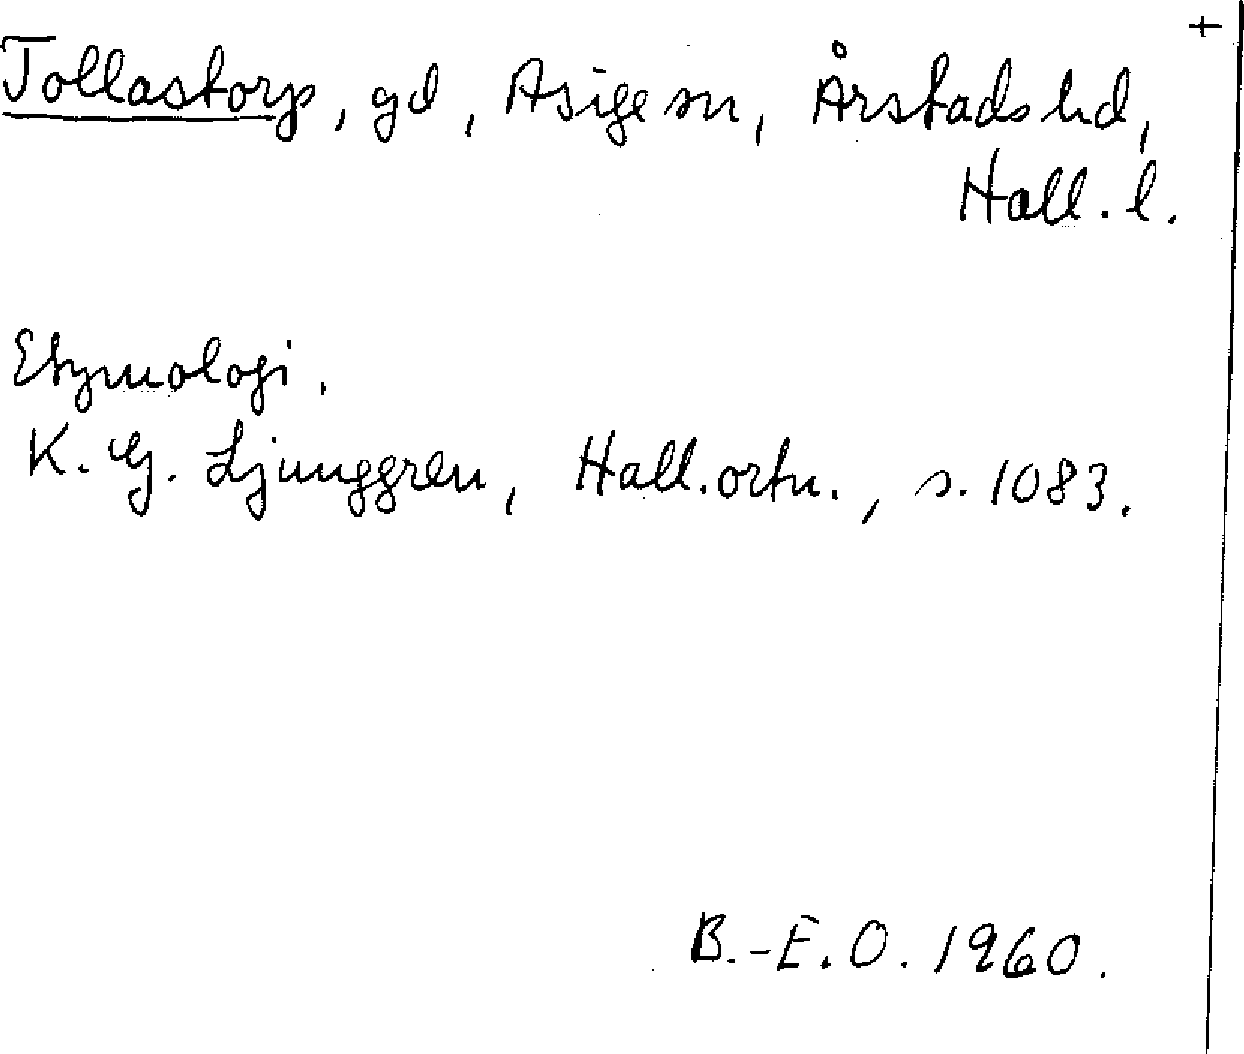 +
Tollastorp, gd, Asige sn, Årstads hd,
Hall. l.
Etymologi.
K. G. Ljunggren, Hall. ortn., s. 1083.
B.-E. O. 1960.